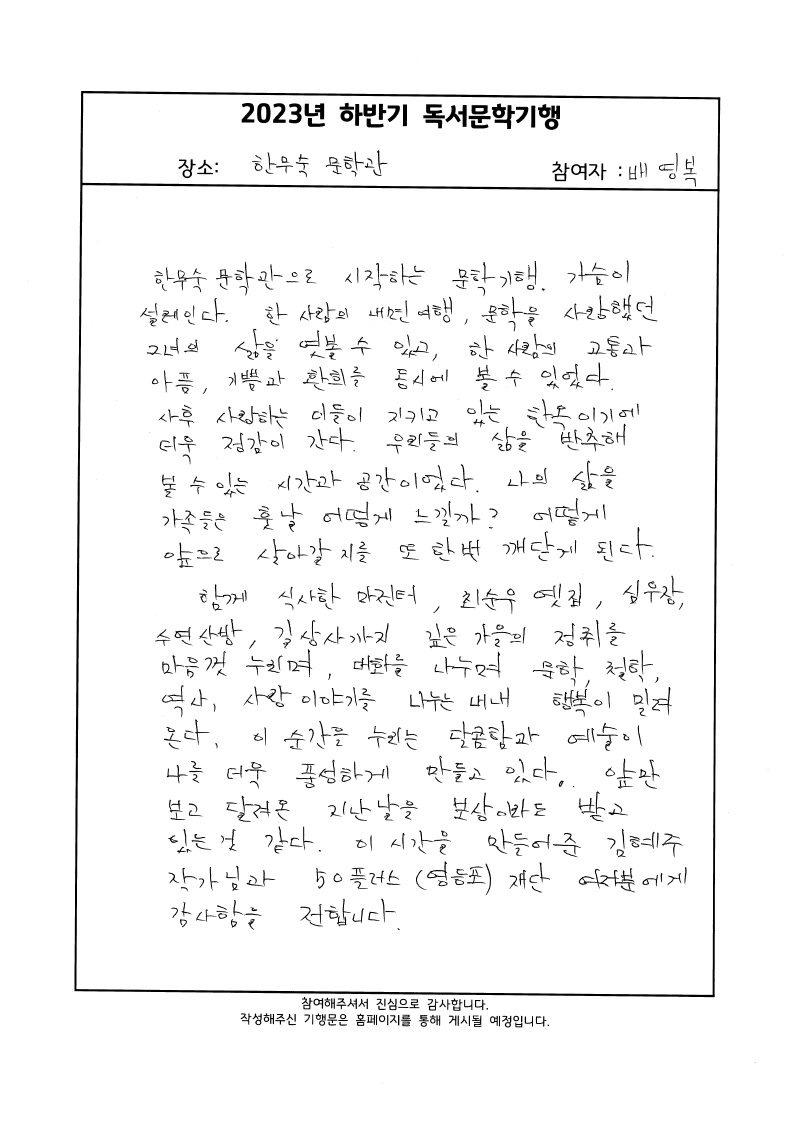 2023년 하반기 독서문학기행
장소: 한무숙 문학관 참여자 : 배 영복
한무숙 문학관으로 시작하는 문학기행. 가슴이
설레인다. 한 사람의 내면여행, 문학을 사랑했던
그녀의 삶을 엿볼 수 있고, 한 사람의 고통과
아픔, 기쁨과 환희를 동시에 볼 수 있었다.
사후 사랑하는 이들이 지키고 있는 한옥이기에
더욱 정감이 간다. 우리들의 삶을 반추해
볼 수 있는 시간과 공간이었다. 나의 삶을
가족들은 훗날 어떻게 느낄까? 어떻게
앞으로 살아갈 지를 또 한번 깨단게 된다.
함께 식사한 마전터, 최순우 옛집, 심우장,
수연산방, 길상사까지 깊은 가을의 정취를
마음껏 누리며, 대화를 나누며 문학, 철학,
역사, 사랑 이야기를 나누는 내내 행복이 밀려
온다. 이 순간을 누리는 달콤함과 예술이
나를 더욱 풍성하게 만들고 있다. 앞만
보고 달려온 지난날을 보상이라도 받고
있는 것 같다. 이 시간을 만들어준 김혜주
작가님과 50플러스 (영등포) 재단 여러분에게
감사함을 전합니다.
참여해주셔서 진심으로 감사합니다.
작성해주신 기행문은 홈페이지를 통해 게시될 예정입니다.